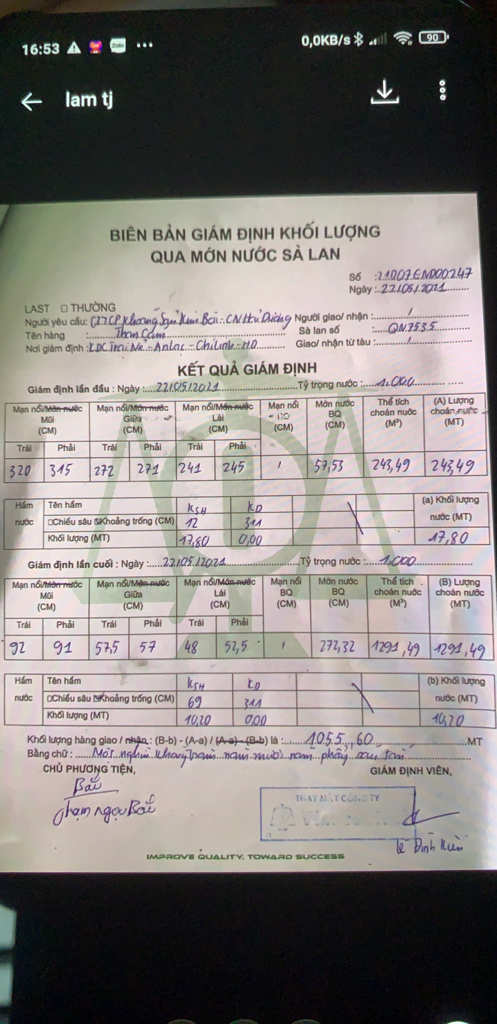 16:53
0,0KB/s 90
lam tj
BIÊN BẢN GIÁM ĐỊNH KHỐI LƯỢNG
QUA MÓN NƯỚC SÀ LAN
Số :21007END00247
Ngày: 22/05/2021
LAST □ THƯỜNG
Người yêu cầu: CTCP Khoáng Sản Kim Bôi - CN Hải Dương Người giao/ nhận :
Tên hàng Than Cám Sà lan số : QN7535
Nơi giám định : - An Lac - Chi Linh - HD Giao/ nhận từ tàu :
KẾT QUẢ GIÁM ĐỊNH
Giám định lần đầu : Ngày : 22/05/2021 Tỷ trọng nước : 1.000
Mạn nổi/Món nước Mũi (CM) Mạn nổi/Món nước Giữa (CM) Mạn nổi/Món nước Lái (CM) Mạn nổi (CM) Món nước BQ (CM) Thể tích choán nước (M³) (A) Lượng choán nước (MT)
Trái Phải Trái Phải Trái Phải
320 315 272 271 241 245 / 57,53 243,49 243,49
Hầm nước Tên hầm KSH KD (a) Khối lượng nước (MT)
□Chiều sâu Khoảng trống (CM) 12 311
Khối lượng (MT) 17,80 0,00 17,80
Giám định lần cuối : Ngày : 22/05/2021 Tỷ trọng nước : 1.000
Mạn nổi/Món nước Mũi (CM) Mạn nổi/Món nước Giữa (CM) Mạn nổi/Món nước Lái (CM) Mạn nổi BQ (CM) Món nước BQ (CM) Thể tích choán nước (M³) (B) Lượng choán nước (MT)
Trái Phải Trái Phải Trái Phải
92 91 57,5 57 48 52,5 / 272,32 1291,49 1291,49
Hầm nước Tên hầm KSH KD (b) Khối lượng nước (MT)
□Chiều sâu Khoảng trống (CM) 69 311
Khối lượng (MT) 10,20 0,00 10,20
Khối lượng hàng giao / nhận : (B-b) - (A-a) / (A-a) - (B-b) là : 1055,60 MT
Bằng chữ : Một nghìn không trăm năm mươi năm phẩy sáu tấn
CHỦ PHƯƠNG TIỆN, GIÁM ĐỊNH VIÊN,
Bắc
Phạm Ngọc Bắc
THAY MẶT CÔNG TY
Lê Đình
IMPROVE QUALITY, TOWARD SUCCESS